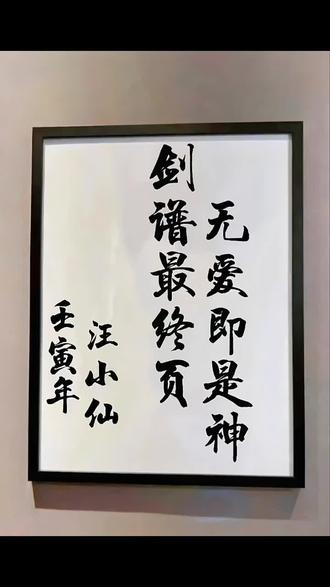 无爱即是神
剑谱最终页
汪小仙
壬寅年